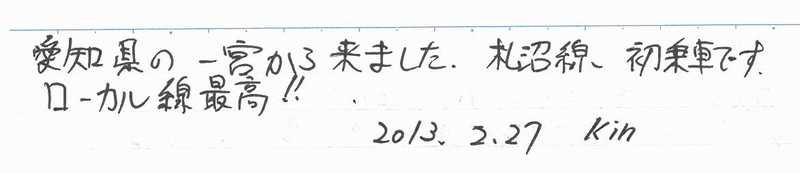 愛知県の一宮から来ました. 札沼線、初乗車です.
ローカル線最高!!
2013. 2.27 Kin